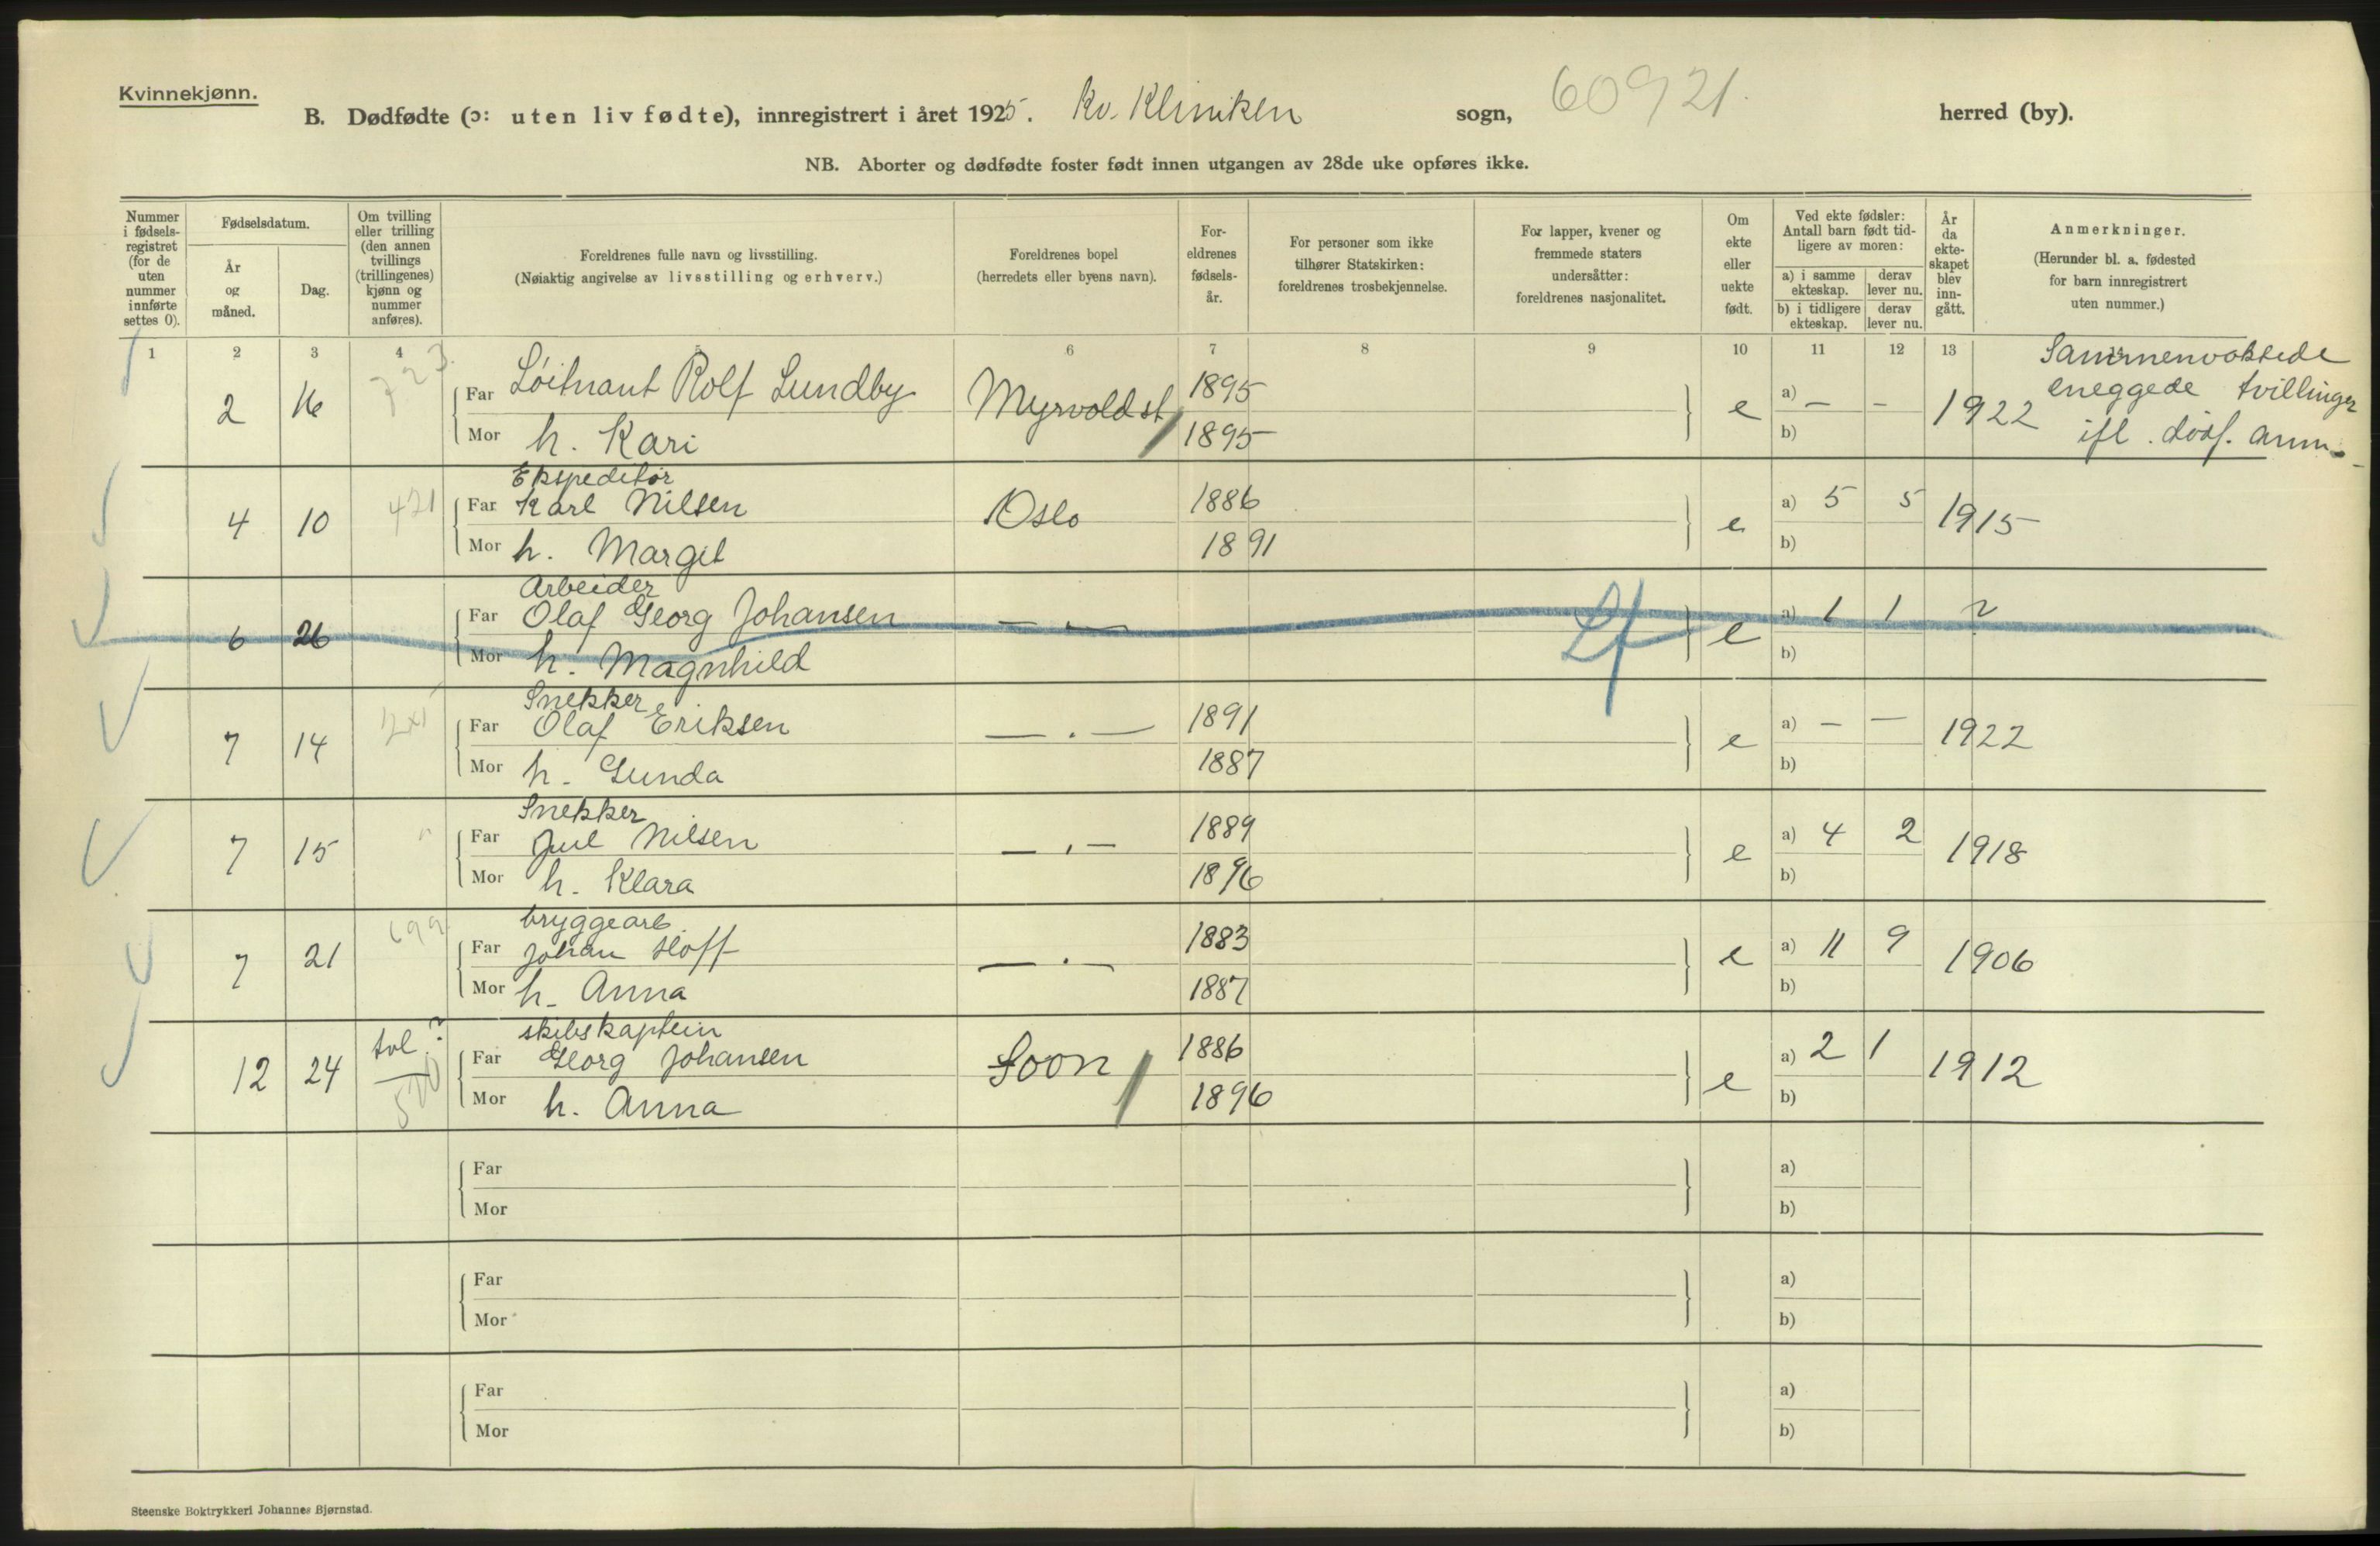 Kvinnekjønn.
B. Dødfødte (ɔ: uten liv fødte), innregistrert i året 1925. Kv. Kliniken sogn, 60921. herred (by).
NB. Aborter og dødfødte foster født innen utgangen av 28de uke opføres ikke.
Nummer i fødsels-registret (for de uten nummer innførte settes 0).
Fødselsdatum.
År og måned.
Dag.
Om tvilling eller trilling (den annen tvillings (trillingenes) kjønn og nummer anføres).
Foreldrenes fulle navn og livsstilling.
(Nøiaktig angivelse av livsstilling og erhverv.)
Foreldrenes bopel
(herredets eller byens navn).
For-eldrenes fødsels-år.
For personer som ikke tilhører Statskirken: foreldrenes trosbekjennelse.
For lapper, kvener og fremmede staters undersåtter: foreldrenes nasjonalitet.
Om ekte eller uekte født.
Ved ekte fødsler: Antall barn født tid-ligere av moren:
a) i samme ekteskap. derav lever nu.
b) i tidligere ekteskap. derav lever nu.
År da ekte-skapet blev inn-gått.
Anmerkninger.
(Herunder bl. a. fødested for barn innregistrert uten nummer.)
1 2 3 4 5 6 7 8 9 10 11 12 13
2 16 723. Far Løitnant Rolf Lundby Myrvold st 1895 e a) — - 1922 Sammenvoksede eneggede tvillinger
Mor h. Kari 1895 b) ifl.
Ekspeditør
4 10 421 Far Karl Nilsen Oslo 1886 e a) 5 5 1915
Mor h. Margit 1891 b)
Arbeider
6 26 Far Olaf Georg Johansen — — e a) 1 1 ?
Mor h. Magnhild b)
Snekker
7 14 Far Olaf Eriksen — . — 1891 e a) — — 1922
Mor h. Gunda 1887 b)
Snekker
7 15 " Far Juul Nilsen — . — 1889 e a) 4 2 1918
Mor h. Klara 1896 b)
bryggearb.
7 21 699 Far Johan Hoff — . — 1883 e a) 11 9 1906
Mor h. Anna 1887 b)
skibskaptein
12 24 tvl. ? Far Georg Johansen Soon 1886 e a) 2 1 1912
Mor h. Anna 1896 b)
Far a)
Mor b)
Far a)
Mor b)
Far a)
Mor b)
Steenske Boktrykkeri Johannes Bjørnstad.